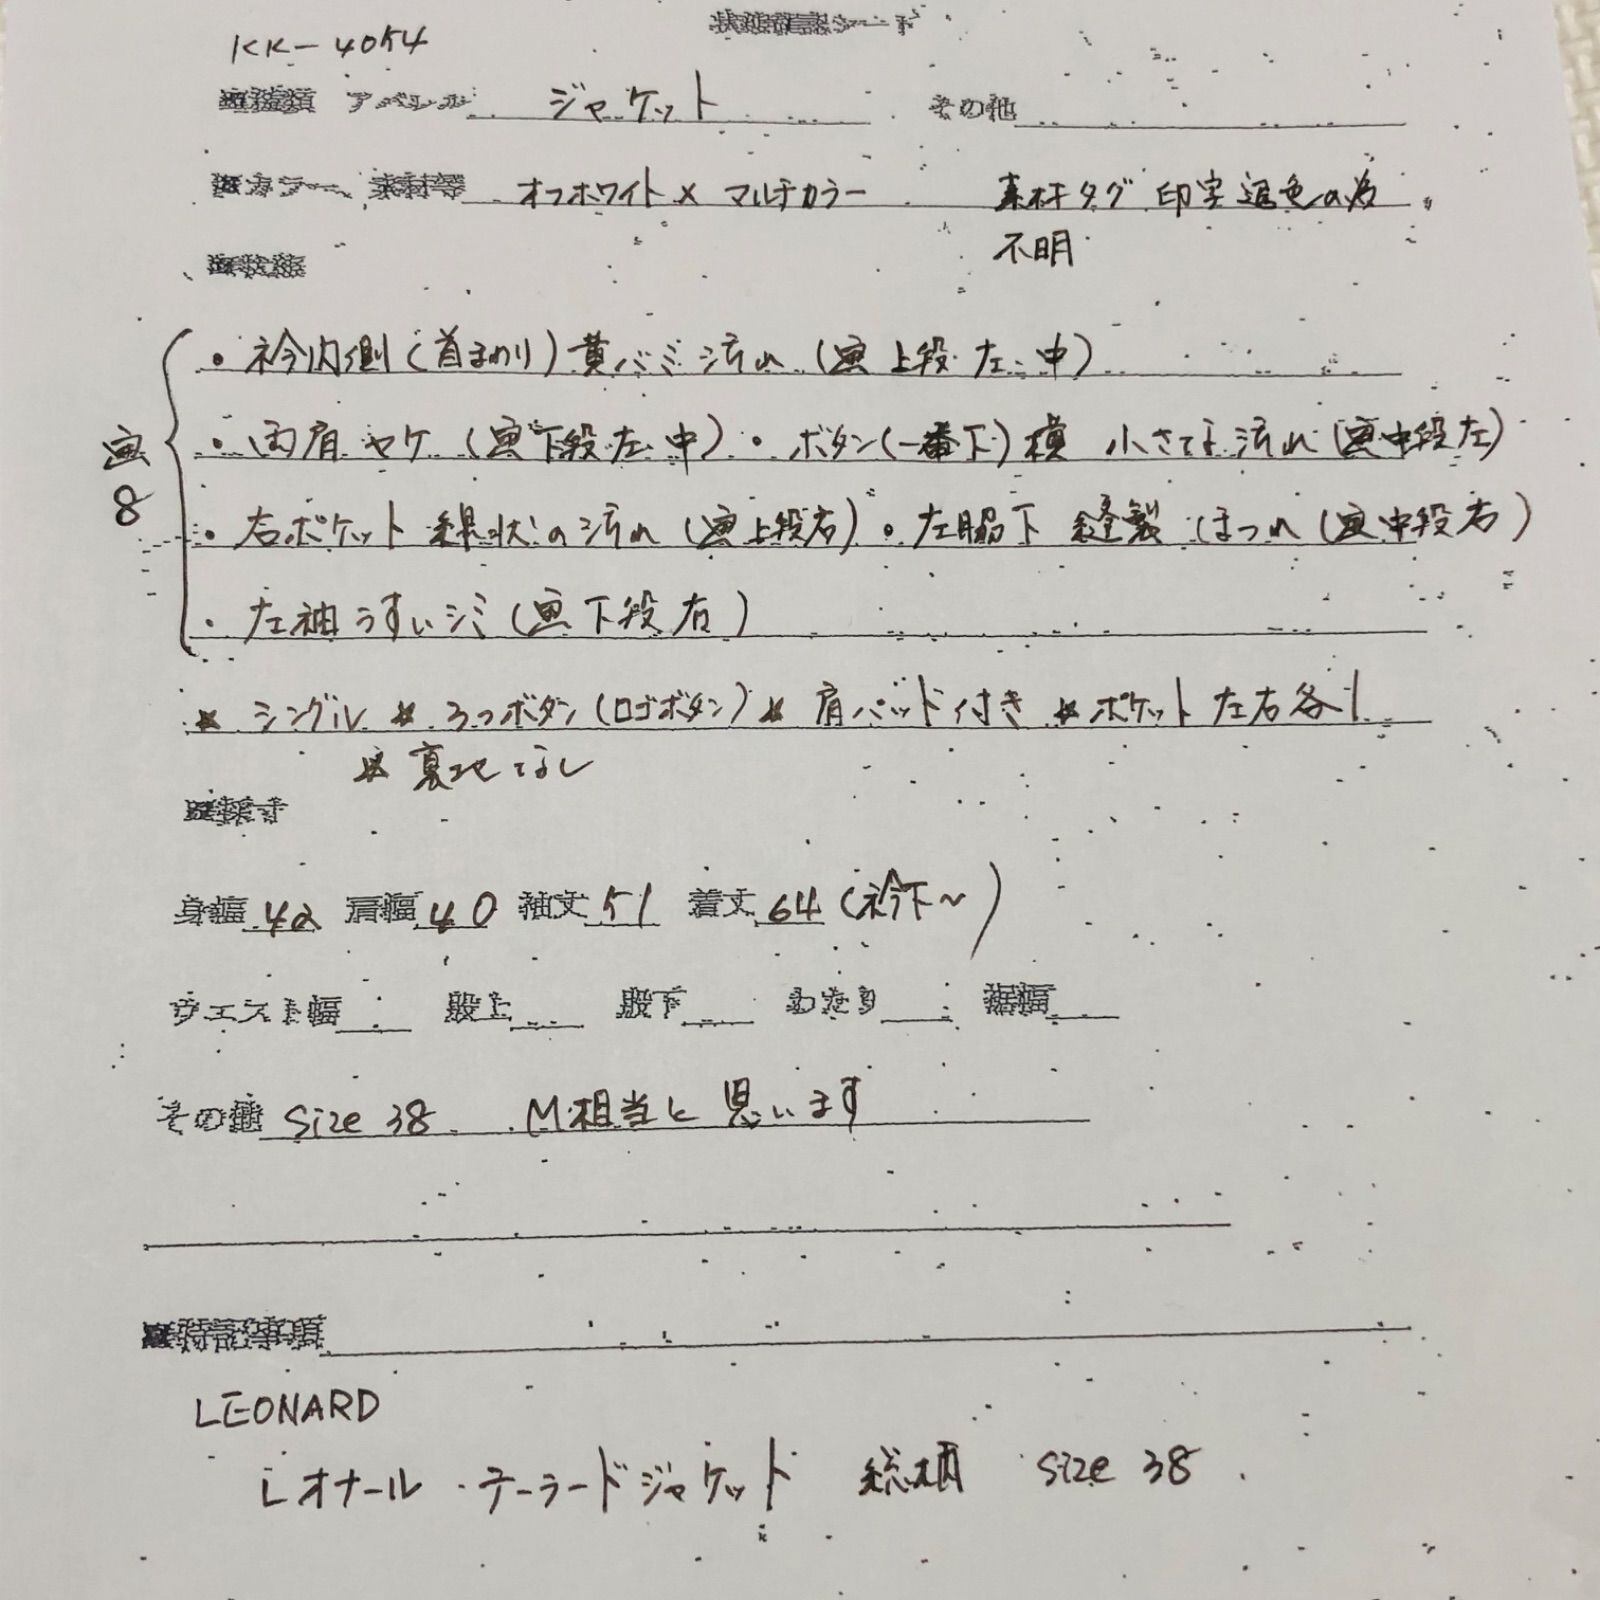 状態確認シート
KK-4054
■種類 アパレル ジャケット その他
■カラー、素材等 オフホワイト×マルチカラー 素材タグ 印字退色の為
不明
■状態
・衿内側(首まわり)黄バミ汚れ(画上段左、中)
・両肩ヤケ(画下段左、中)・ボタン(一番下)横 小さな汚れ(画中段左)
画8
・右ポケット 線状の汚れ(画上段右)・左脇下 縫製ほつれ(画中段右)
・左袖うすいシミ(画下段右)
* シングル * 3つボタン(ロゴボタン) * 肩パッド付き * ポケット左右各1
* 裏地なし
■採寸
身幅 42 肩幅 40 袖丈 51 着丈 64(衿下~)
ウエスト幅 股上 股下 わたり 裾幅
その他 size 38 M相当と思います
■特記事項
LEONARD
レオナール・テーラードジャケット 総柄 size 38